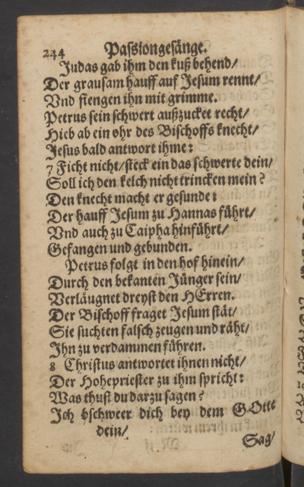 244 Passiongesänge.
Judas gab ihm den kuß behend/
Der grausam hauff auf Jesum rennt/
Vnd fiengen ihn mit grimme.
Petrus sein schwert außzucket recht/
Hieb ab ein ohr des Bischoffs knecht/
Jesus bald antwort ihme:
7 Ficht nicht/ steck ein das schwerte dein/
Soll ich den kelch nicht trincken mein?
Den knecht macht er gesunde:
Der hauff Jesum zu Hannas führt/
Vnd auch zu Caipha hinführt/
Gefangen und gebunden.
Petrus folgt in den hof hinein/
Durch den bekanten Jünger sein/
Verläugnet dreyst den HErren.
Der Bischoff fraget Jesum stät/
Sie suchten falsch zeugen und räht/
Ihn zu verdammen führen.
8 Christus antwortet ihnen nicht/
Der Hohepriester zu ihm spricht:
Was thust du darzu sagen?
Ich bschweer dich bey dem GOtte
dein/
Sag/